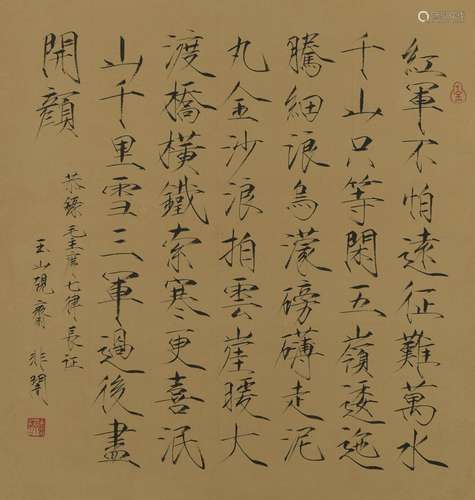 紅軍不怕遠征難萬水
千山只等閑五嶺逶迤
騰細浪烏濛磅礡走泥
丸金沙浪拍雲崖暖大
渡橋橫鐵索寒更喜泯
山千里雪三軍過後盡
開顏
恭錄毛主席七律長征
玉山硯齋